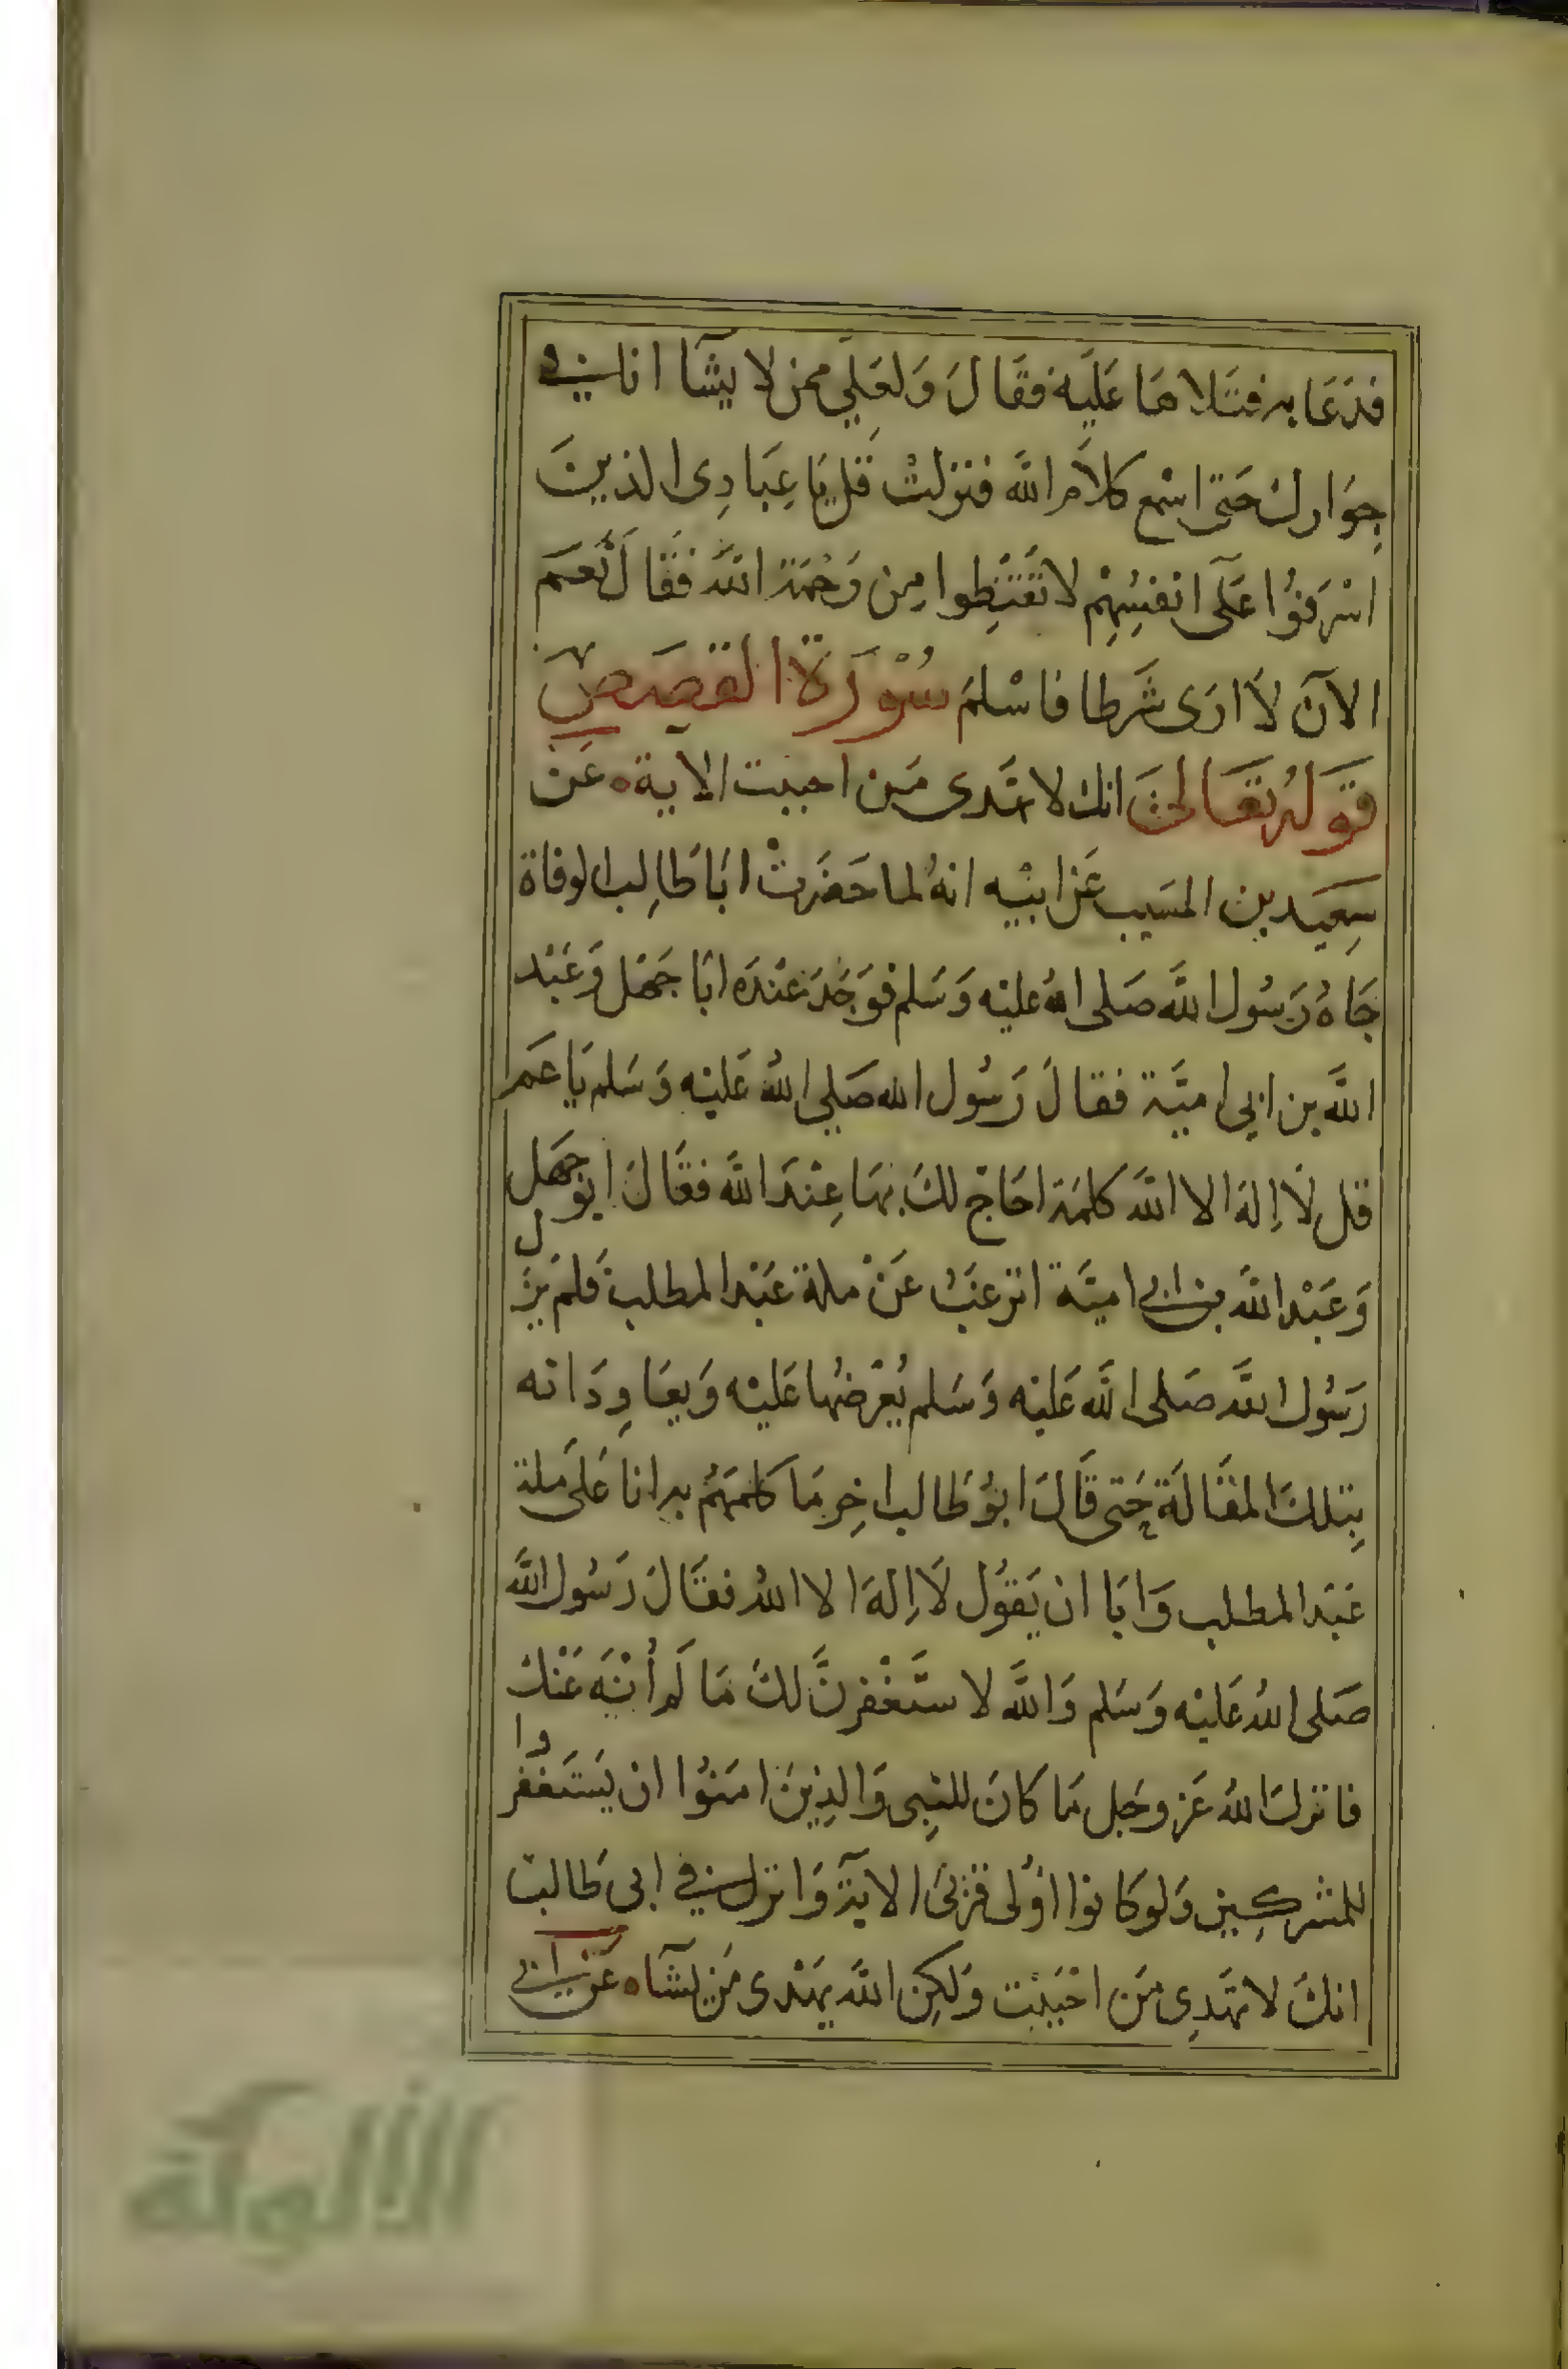 فدَعَا به فتَلاهَا عَليْه فقَالَ وَلعَلِي ممن لا يشآ انا في
جِوَارك حَتى اسْمع كلاَم الله فنزلتْ قل يَا عِبَادِى الذينَ
اسْرَفوُا عَلَى انفسِهِمْ لا تَقنَطِوا مِن رَحْمَة الله فقَالَ نَعَم
الآنَ لاَ ارَى شَرطا فاسْلمَ سُوْرَة القصَصِ
قوَلهُ تعَالىَ انك لا تهَدى مَن احببت الاية ه عَن
سِعيَد بن المسَيب عَن ابيْه انهُ لما حَضَرتْ ابَا طَالِب الوفاة
جَاهُ رَسُول الله صَلى الله عليْه وَسَلم فوَجَدَ عنْدَه ابَا جَهْل وَعَبْد
الله بن ابي اميَّة فقالَ رَسُول الله صَلي اللهُ عَليْه وَسَلم يَا عَم
قل لاَ اِلهَ الا الله كلمَة احَاج لكَ بهَا عِنْدَ الله فقَالَ ابوُ جهَل
وَعَبْد الله بن ابي اميَّة اترغَبُ عَنْ ملة عَبْد المطلب فلم يَزل
رَسُول الله صَلى الله عَليْه وَسَلم يُعْرضُها عَليْه وَيعَاوِدَانه
بِتلكَ المقَالَة حَتى قَالَ ابوُ طَالب اخِر مَا كلمَهُم به انا عَلَى ملة
عَبْد المطلب وَابَا ان يَقوُل لاَ اِلهَ الا اللهُ فقَالَ رَسُول الله
صَلى اللهُ عَليْه وَسَلم وَالله لاستَغْفرنَّ لكَ مَا لَم أُنْهَ عَنْك
فانزلَ اللهُ عَز وجَل مَا كانَ للنِبى وَالذِينَ امَنوُا ان يَستَغفروا
للمشركِين وَلو كانوا اوُلى قرْبَى الايَة وَانزل في ابى طَالب
انكَ لا تهَدِى مَن احْبَبْت وَلكِن الله يهَدى مَن يشَآ ه عَن ابي
الألوكة